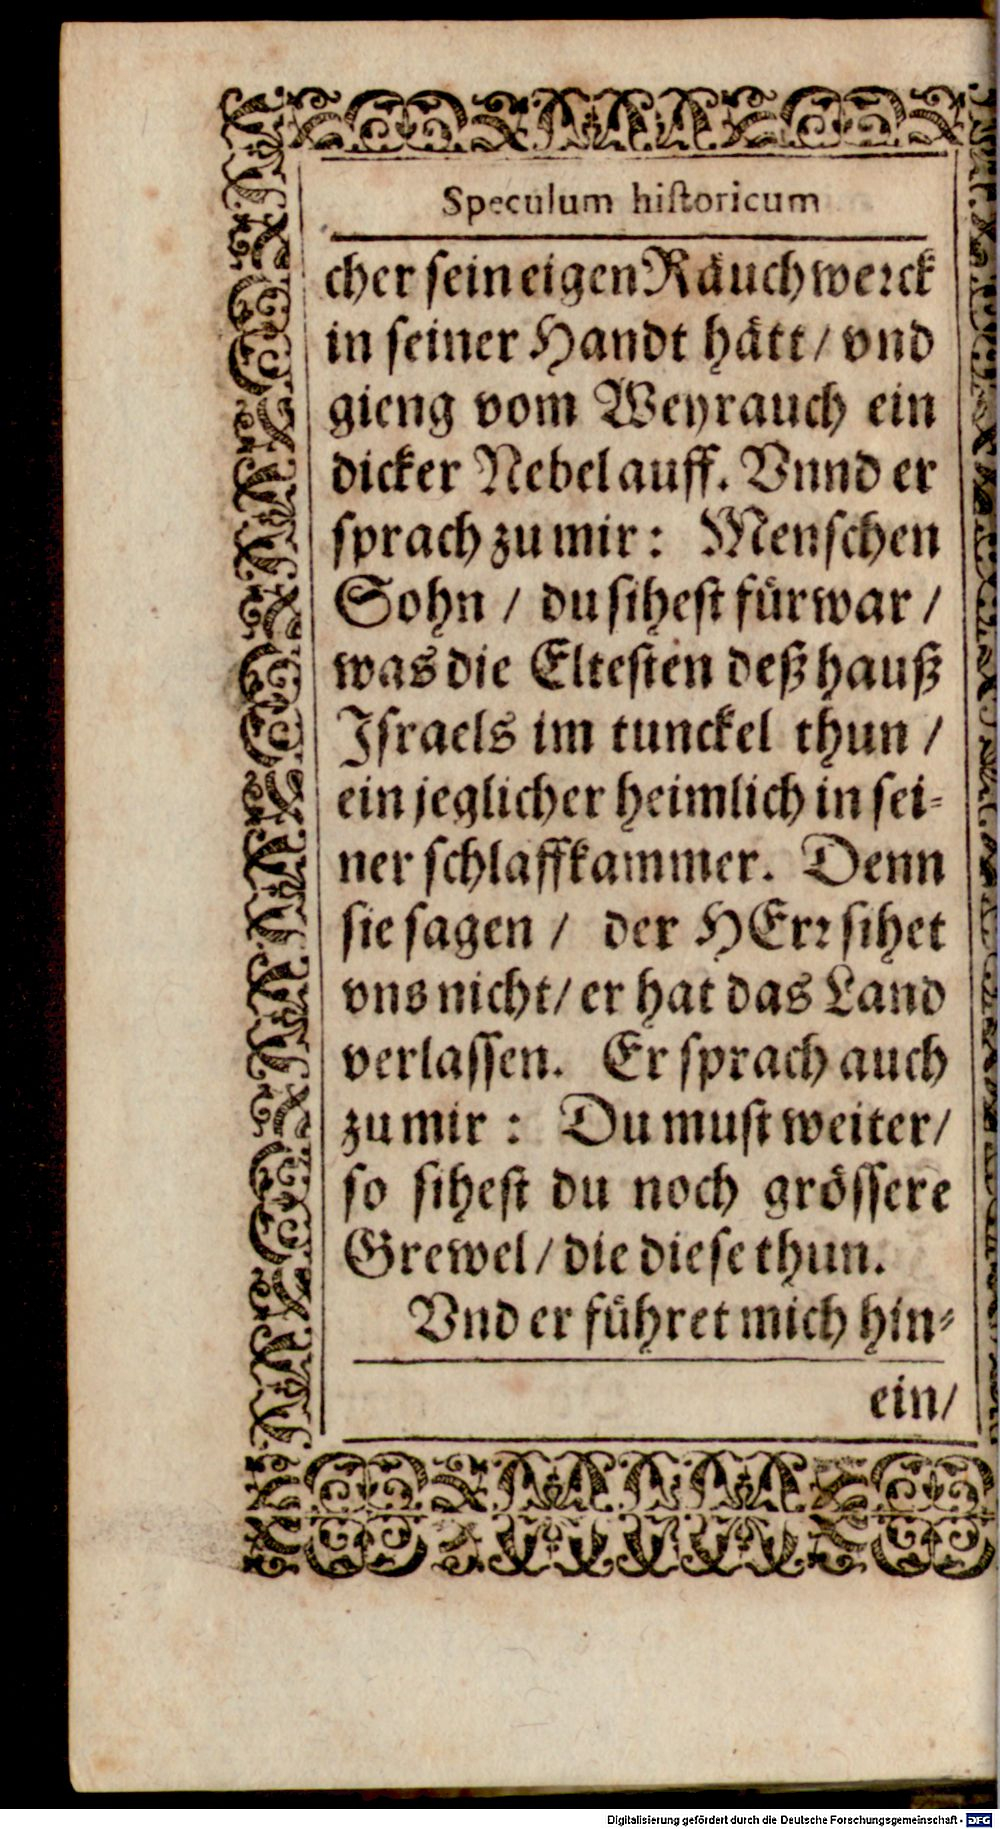 Speculum historicum
cher sein eigen Räuchwerck
in seiner Handt hätt / vnd
gieng vom Weyrauch ein
dicker Nebel auff. Vnnd er
sprach zu mir : Menschen
Sohn / du sihest fürwar /
was die Eltesten deß hauß
Israels im tunckel thun /
ein jeglicher heimlich in sei-
ner schlaffkammer. Denn
sie sagen / der HErr sihet
vns nicht / er hat das Land
verlassen. Er sprach auch
zu mir : Du must weiter /
so sihest du noch grössere
Grewel / die diese thun.
Vnd er führet mich hin-
ein /
Digitalisierung gefördert durch die Deutsche Forschungsgemeinschaft - DFG